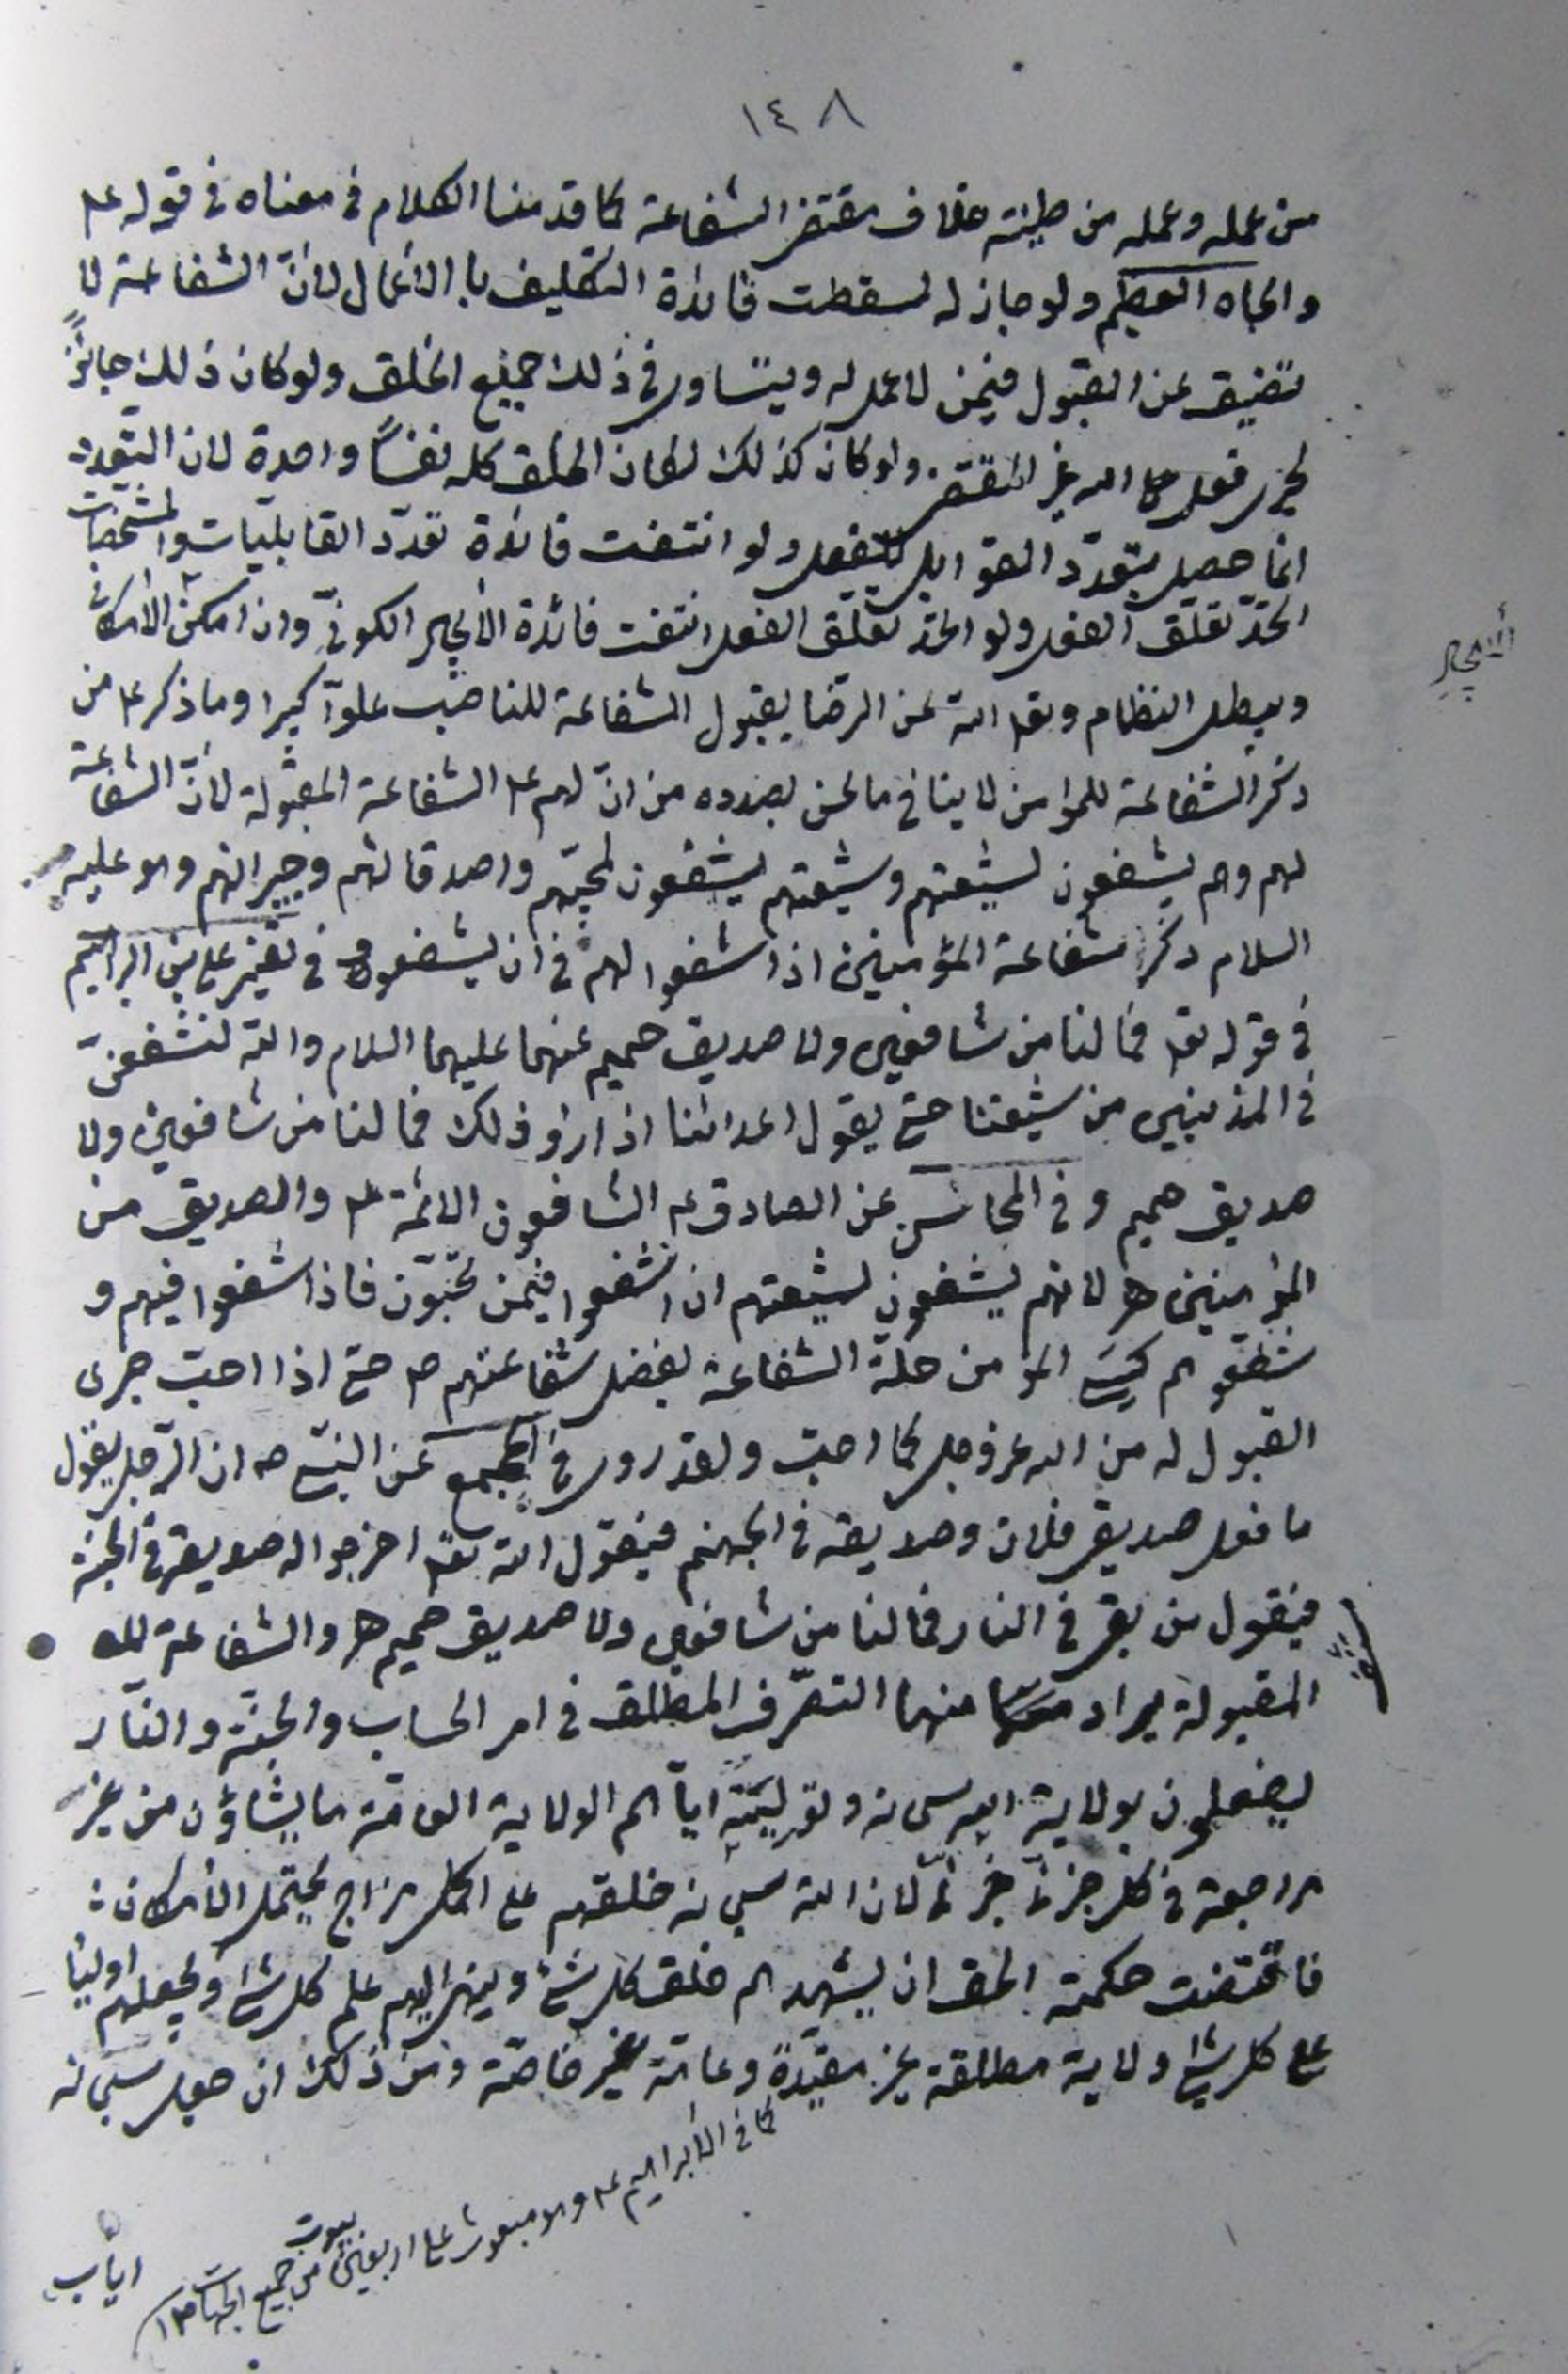 ١٤٨
من عمله وعمله من طينته خلاف مقتضى الشفاعة كما قدمنا الكلام فى معناه فى قوله ع
والجاه العظيم ولو جاز له لسقطت فائدة التكليف با الأعمال لانّ الشفاعة لا
تضيق عن القبول فيمن لا عمل له ويتساوى فى ذلك جميع الخلق ولو كان ذلك جائزاً
لجرى فعل الله غير المقتضى ولو كان كذلك لكان الخلق كله نفساً واحدة لان التعدد
انما حصل بتعدّد القوابل للفعل ولو انتفت فائدة تعدّد القابليات والمشخصات
اتحدّ تعلّق الفعل ولو اتحد تعلّق الفعل انتفت فائدة الأيجاد الكونىّ وان امكن الأمكانى
الأيجاد
ويبطل النظام وتعا الله عن الرضا بقبول الشفاعة للناصب علوآ كبيرا وما ذكر ع من
ذكر الشفاعة للمؤمن لا ينافى ما نحن بصدده من انّ لهم ع الشفاعة المقبولة لأنّ الشفاعة
لهم وهم يشفعون لشيعتهم وشيعتهم يشفعون لمحبيّهم واصدقائهم وجيرانهم وهو عليه
السلام ذكر شفاعة المؤمنين اذا شفعوا لهم فى ان يشفعوا وفى تفسير على بن ابراهيم
فى قوله تعا فما لنا من شافعين ولا صديق حميم عنهما عليهما السلام والله لنشفعنّ
فى المذنبين من شيعتنا حتى يقول اعدائنا اذا راو ذلك فما لنا من شافعين ولا
صديق حميم وفى المحاسن عن الصادق ع الشافعون الائمة ع والصديق من
المؤمنين ه لانهم يشفعون لشيعتهم ان اشفعوا فيمن تحبّون فاذا شفعوا فيهم و
شفعوهم كسى المؤمن حلّة الشفاعة بفضل شفاعتهم ع حتى اذا احبّ جرى
القبول له من الله عز وجل كما احبّ ولقد روى فى المجمع عن النبى ص ان الرّجل يقول
ما فعل صديقى فلان وصديقه فى الجهنم فيقول الله تعا اخرجوا له صديقه فى الجنة
فيقول من بقى فى النار فما لنا من شافعين ولا صديق حميم ه والشفاعة
المقبولة يراد منها التصرّف المطلق فى امر الحساب والجنّة والنّار
يفعلون بولاية الله سبحانه وتوليته ايّاهم الولاية العامّة ما يشاؤن من غير
مراجعة فى كل جزئى جزئى لان الله سبحانه خلقهم على اكمل مزاج يحتمل الأمكان
فاقتضت حكمة الحق ان يشهدهم خلق كل شئ وينهى اليهم علم كل شئ ويجعلهم اولياء
على كل شئ ولاية مطلقة غير مقيّدة وعامّة غير خاصّة ومن ذلك ان جعل سبحانه
كما فى الأبراهيم ع وهو مبعوث على اربعين بيوت من جميع الجهات ١٢
اياب